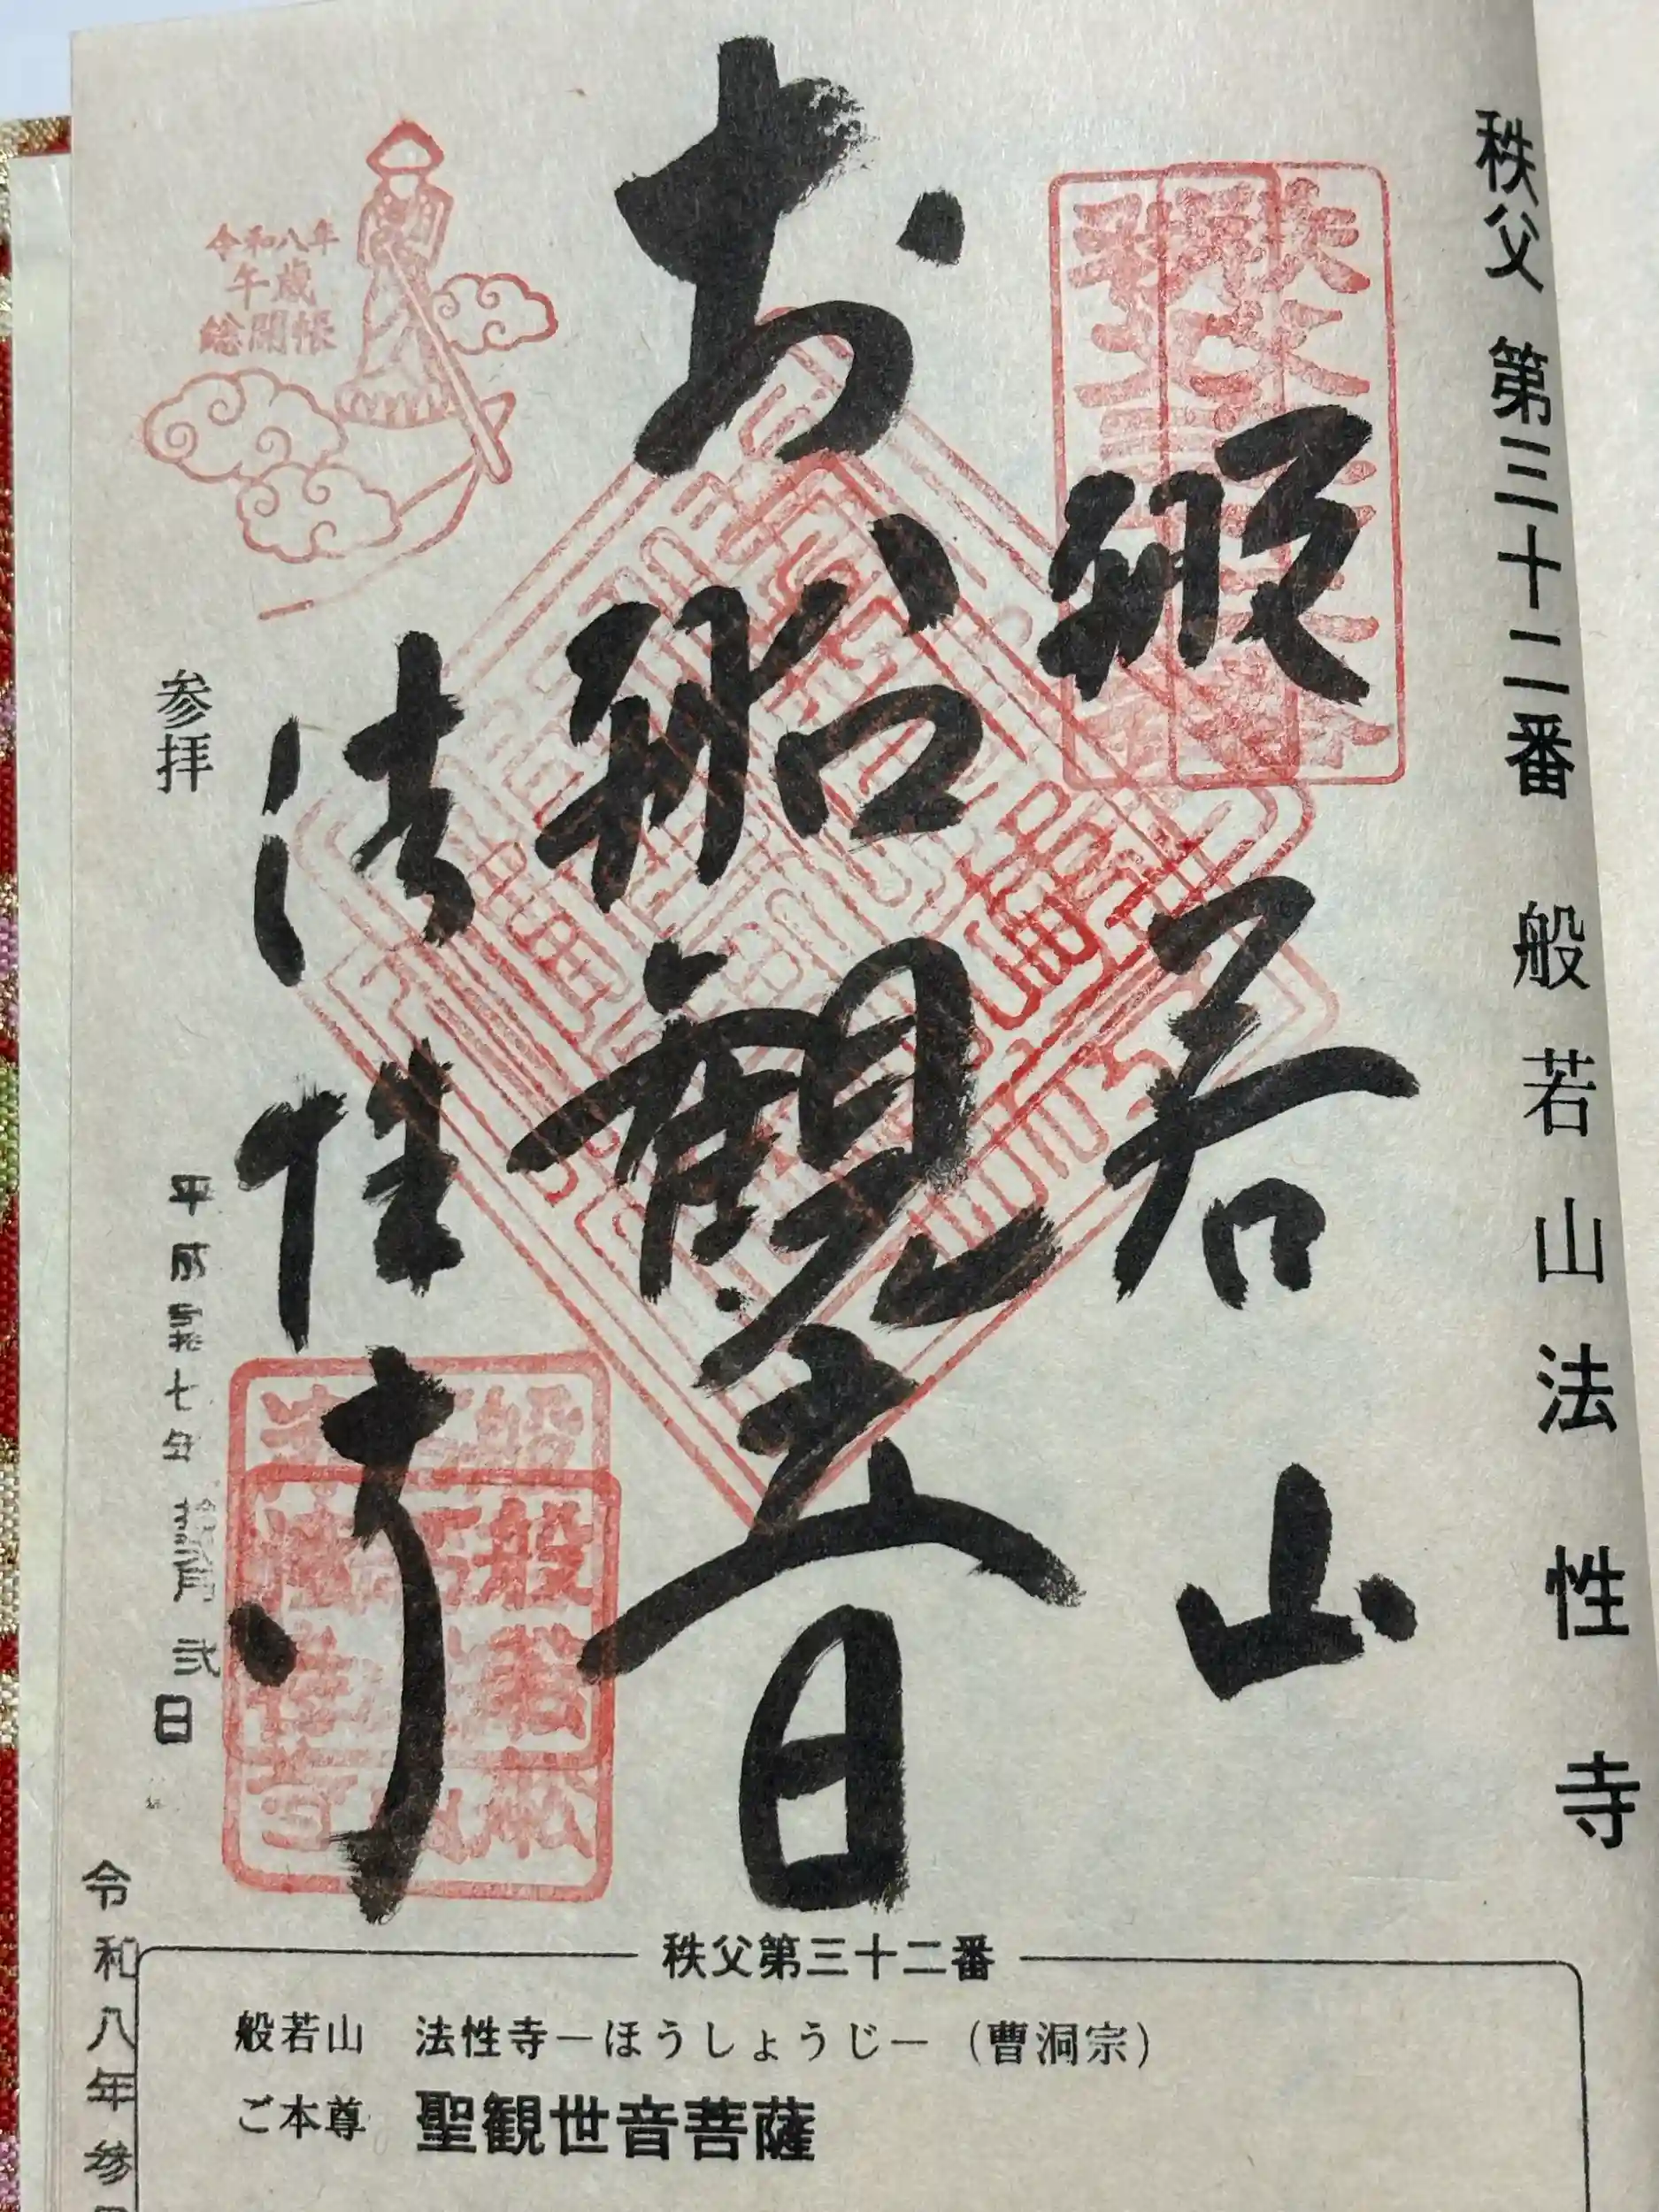 秩父 第三十二番 般若山 法性寺
般若山
お船観音
法性寺
令和八年
午歳
総開帳
参拝
平成 七年 弐日
令和八年参
秩父第三十二番
般若山 法性寺－ほうしょうじ－（曹洞宗）
ご本尊 聖観世音菩薩